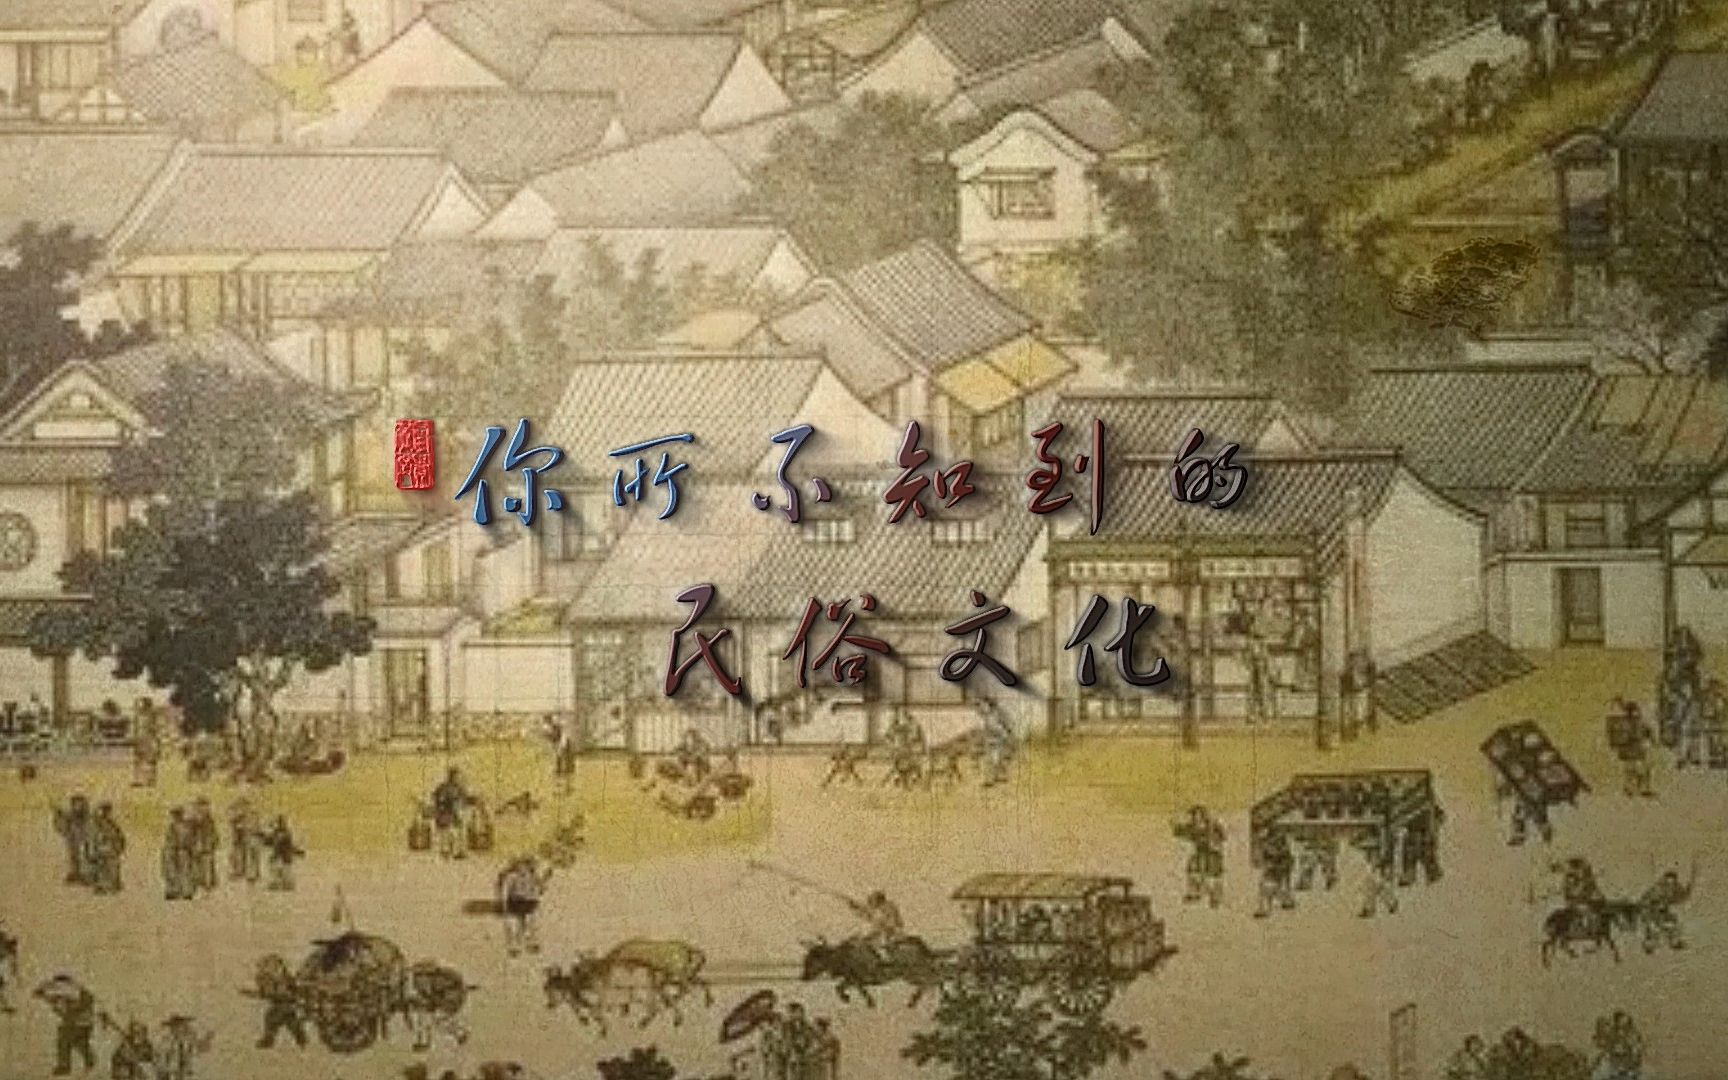 你所不知到的
民俗文化